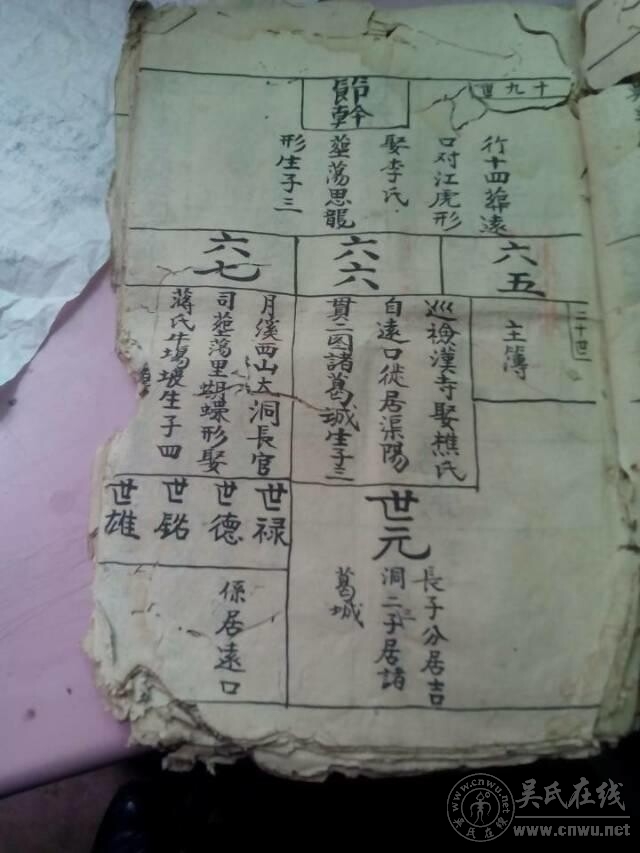 十九世
節幹
行十四葬遠
口对江虎形
娶李氏
葬蕩思龍
形生子三
六五
六六
六七
二十世
主簿
巡檢漢寺娶樵氏
自遠口徙居渠陽
貫二图諸葛城生子三
月後西山大洞長官
司葬蕩里蝴蝶形娶
蔣氏牛塲埂生子四
世元
世禄
世德
世銘
世雄
長子分居吉
洞二子居諸
葛城
係居遠口
吴氏在线
www.cnwu.net